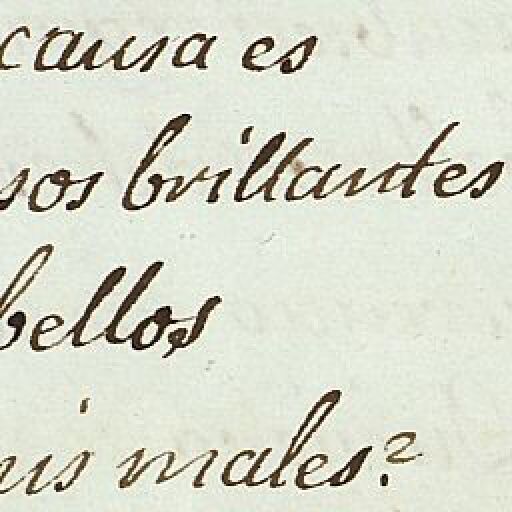 causa es
sos brillantes
bellos,
mis males?